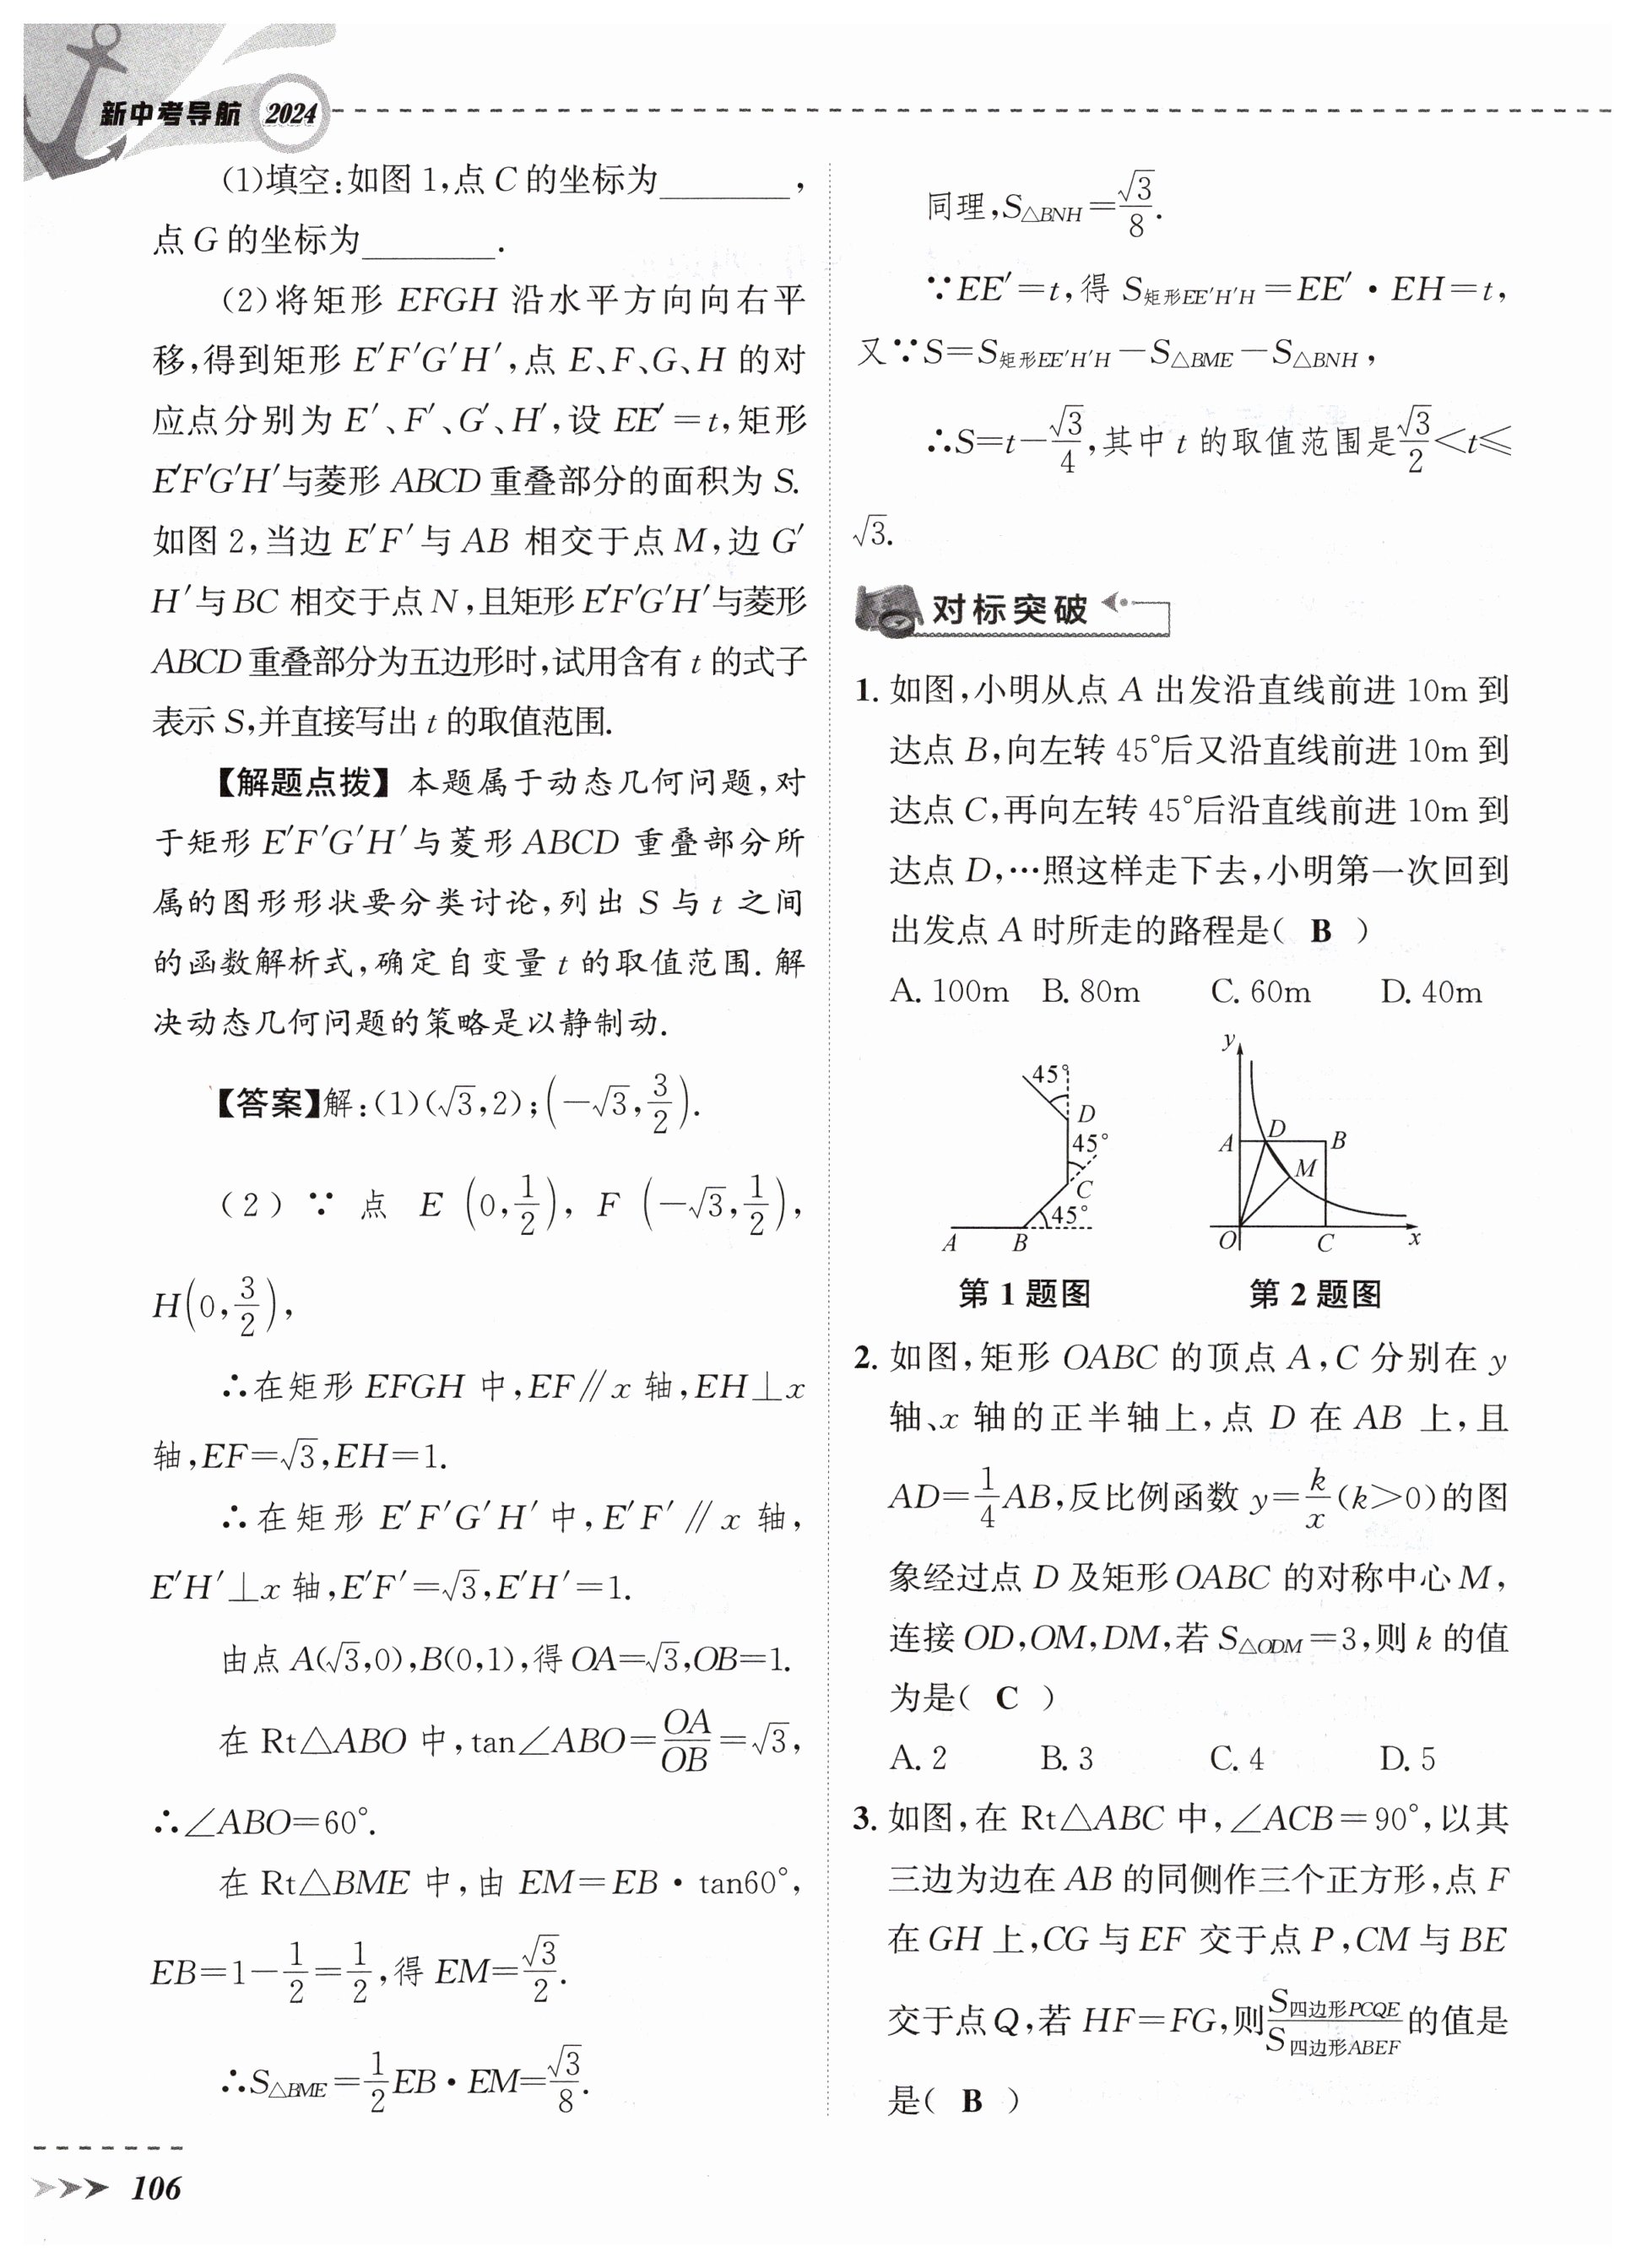 新中考导航 2024
(1)填空:如图1,点C的坐标为________,
点G的坐标为________.
(2)将矩形 EFGH 沿水平方向向右平
移,得到矩形 E′F′G′H′,点 E、F、G、H 的对
应点分别为 E′、F′、G′、H′,设 EE′=t,矩形
E′F′G′H′与菱形 ABCD 重叠部分的面积为 S.
如图2,当边 E′F′与 AB 相交于点 M,边 G′
H′与BC 相交于点N,且矩形E′F′G′H′与菱形
ABCD重叠部分为五边形时,试用含有 t 的式子
表示 S,并直接写出 t 的取值范围.
【解题点拨】本题属于动态几何问题,对
于矩形 E′F′G′H′与菱形 ABCD 重叠部分所
属的图形形状要分类讨论,列出 S 与 t 之间
的函数解析式,确定自变量 t 的取值范围.解
决动态几何问题的策略是以静制动.
【答案】解:(1)(√3,2);(−√3,3/2).
(2)∵点 E (0,1/2), F (−√3,1/2),
H(0,3/2),
∴在矩形 EFGH 中,EF∥x 轴,EH⊥x
轴,EF=√3,EH=1.
∴在矩形 E′F′G′H′中,E′F′∥x 轴,
E′H′⊥x 轴,E′F′=√3,E′H′=1.
由点 A(√3,0),B(0,1),得 OA=√3,OB=1.
在 Rt△ABO 中,tan∠ABO=OA/OB=√3,
∴∠ABO=60°.
在 Rt△BME 中,由 EM=EB·tan60°,
EB=1−1/2=1/2,得 EM=√3/2.
∴S△BME=1/2EB·EM=√3/8.
106
同理,S△BNH=√3/8.
∵EE′=t,得 S矩形EE′H′H=EE′·EH=t,
又∵S=S矩形EE′H′H−S△BME−S△BNH,
∴S=t−√3/4,其中 t 的取值范围是√3/2<t≤
√3.
对标突破
1. 如图,小明从点 A 出发沿直线前进 10m 到
达点 B,向左转 45°后又沿直线前进 10m 到
达点 C,再向左转 45°后沿直线前进 10m 到
达点 D,…照这样走下去,小明第一次回到
出发点 A 时所走的路程是( B )
A. 100m B. 80m C. 60m D. 40m
45°
D
45°
C
45°
A B
第1题图
y
A D B
M
O C x
第2题图
2. 如图,矩形 OABC 的顶点 A,C 分别在 y
轴、x 轴的正半轴上,点 D 在 AB 上,且
AD=1/4AB,反比例函数 y=k/x(k>0)的图
象经过点 D 及矩形OABC 的对称中心M,
连接 OD,OM,DM,若 S△ODM=3,则 k 的值
为是( C )
A. 2 B. 3 C. 4 D. 5
3. 如图,在 Rt△ABC 中,∠ACB=90°,以其
三边为边在 AB 的同侧作三个正方形,点 F
在 GH 上,CG 与 EF 交于点 P,CM 与 BE
交于点 Q,若 HF=FG,则S四边形PCQE/S四边形ABEF的值是
是( B )